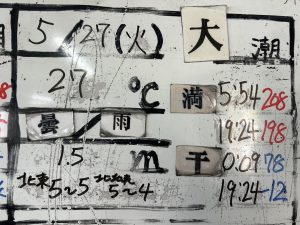 5/27(火) 大 潮
27 ℃ 満 5:54 208
曇 / 雨 19:24 198
1.5 m 干 0:09 78
北東 5~5 5~4 19:24 -12